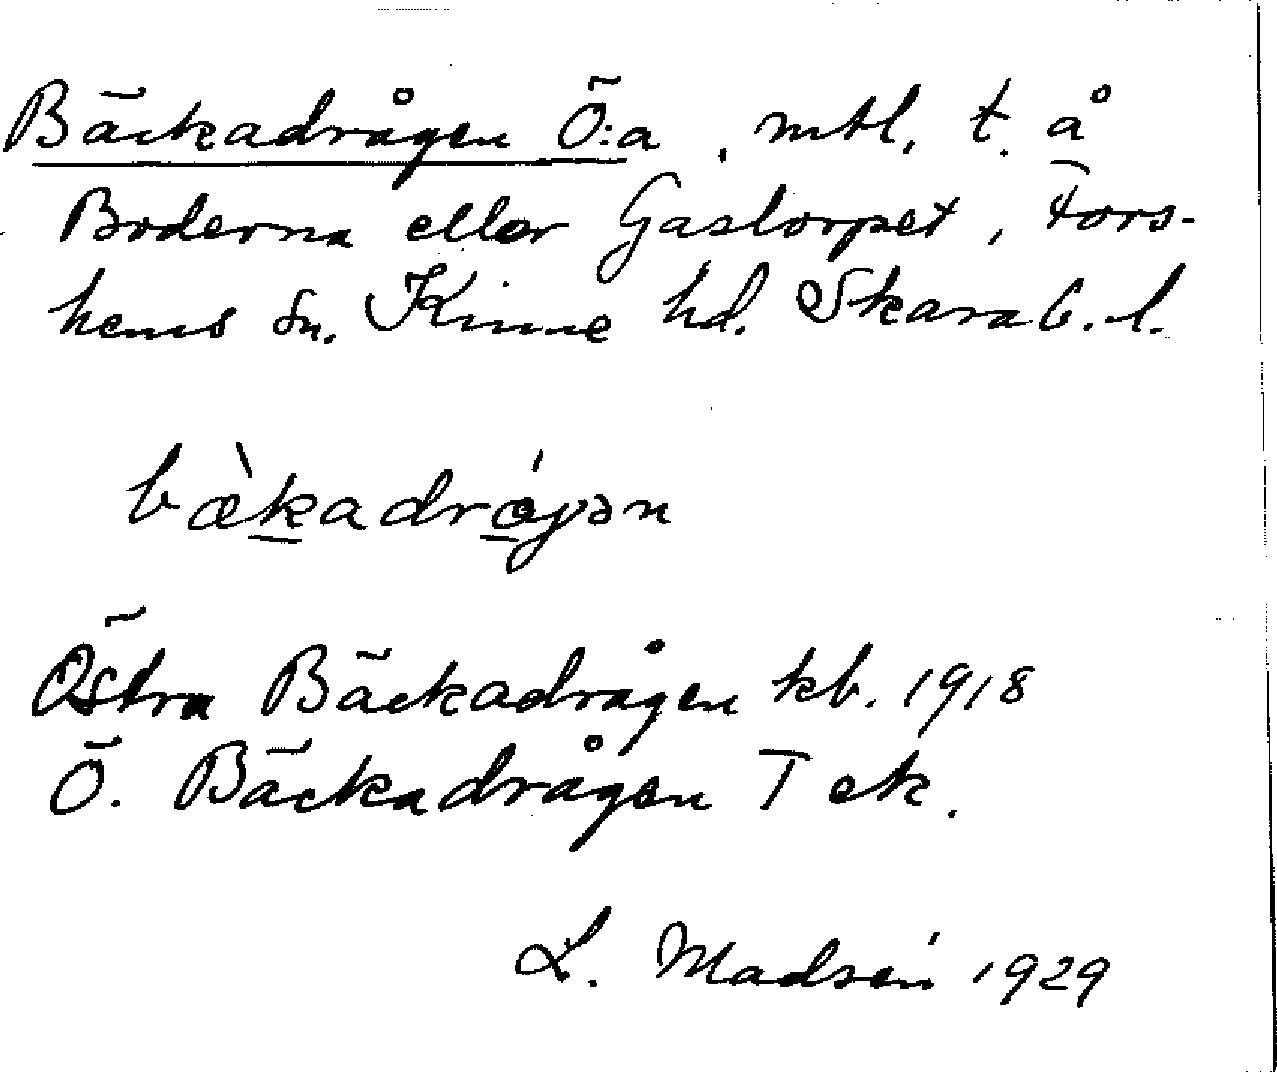 Bäckadrågen Ö:a, mtl. t. å
Boderna eller Gastorpet, Fors-
hems sn. Kinne hd. Skarab. l.
bæ̀kadrǫ́γən
Östra Bäckadrågen kb. 1918
Ö. Bäckadrågen T ek.
L. Madsén 1929